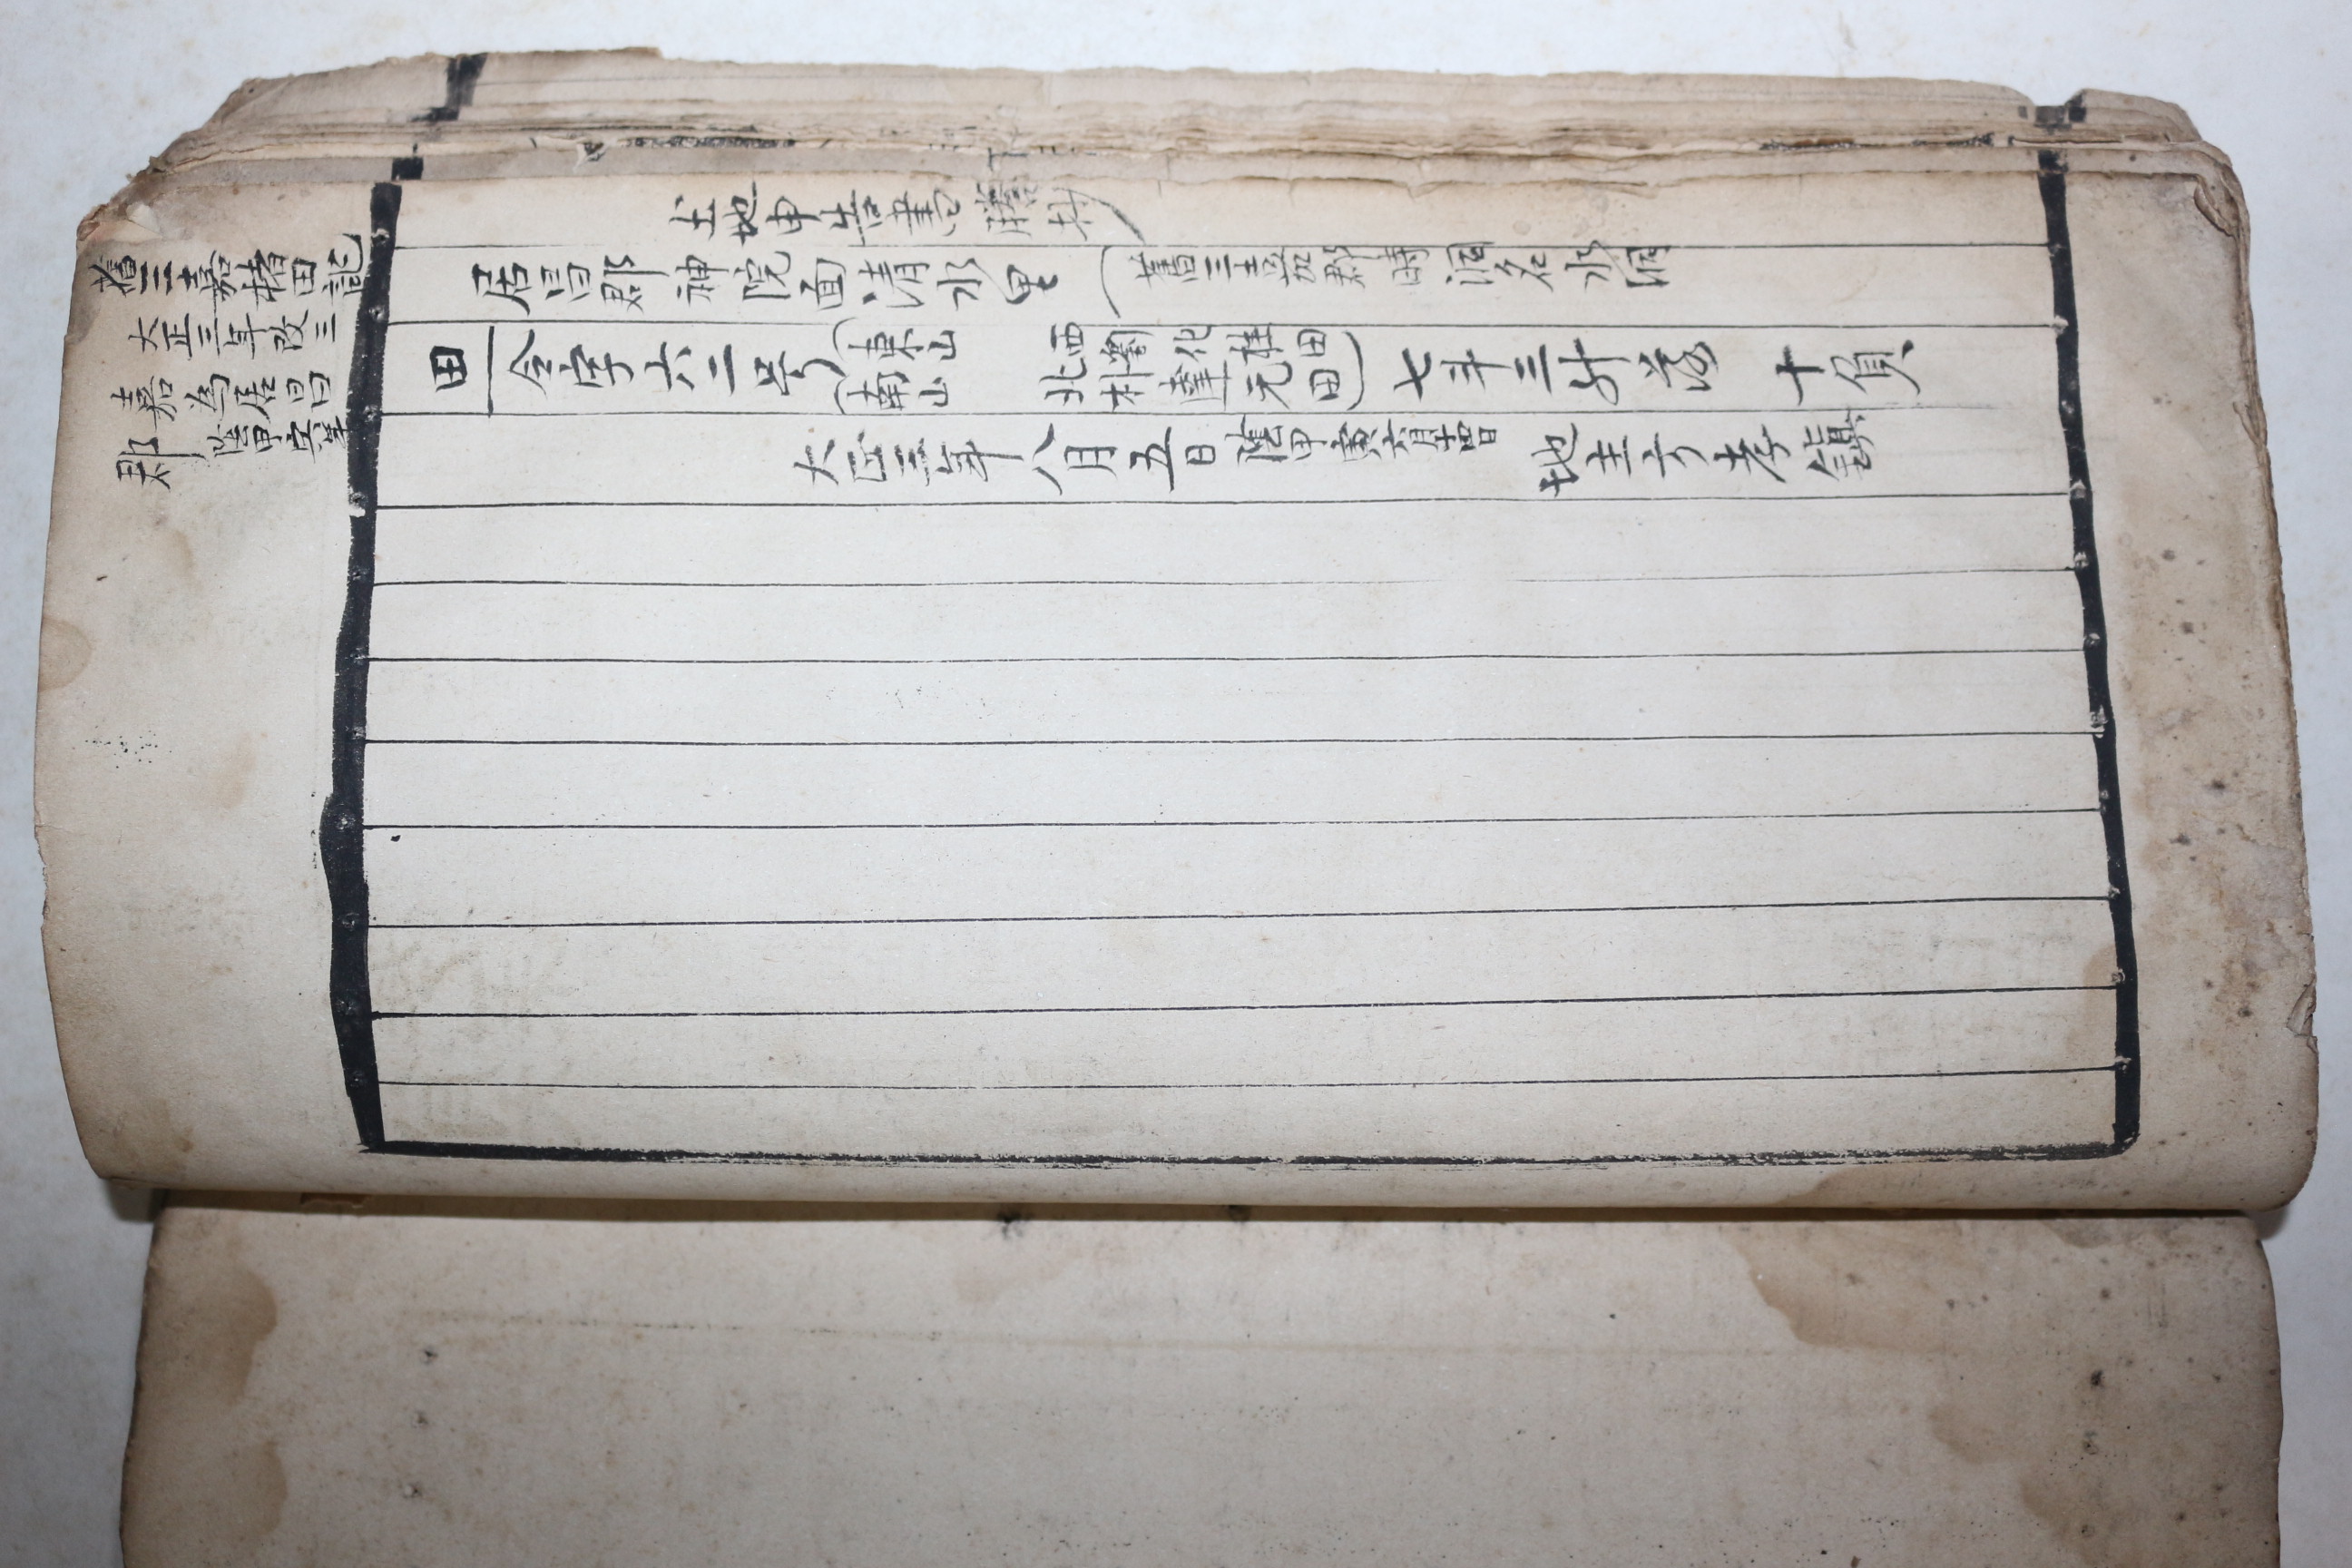 舊三嘉楮田記
大正三年改三
嘉為居昌
郡 陰甲寅年
土地申告書謄抄
居昌郡神院面清水里(舊三嘉郡時洞名水洞)
田 令字六二号(東山 西劉化桂田 南山 北朴達元田)七斗三升落 十負
大正三年八月五日 陰甲寅六月十四日 地主 孝鎮